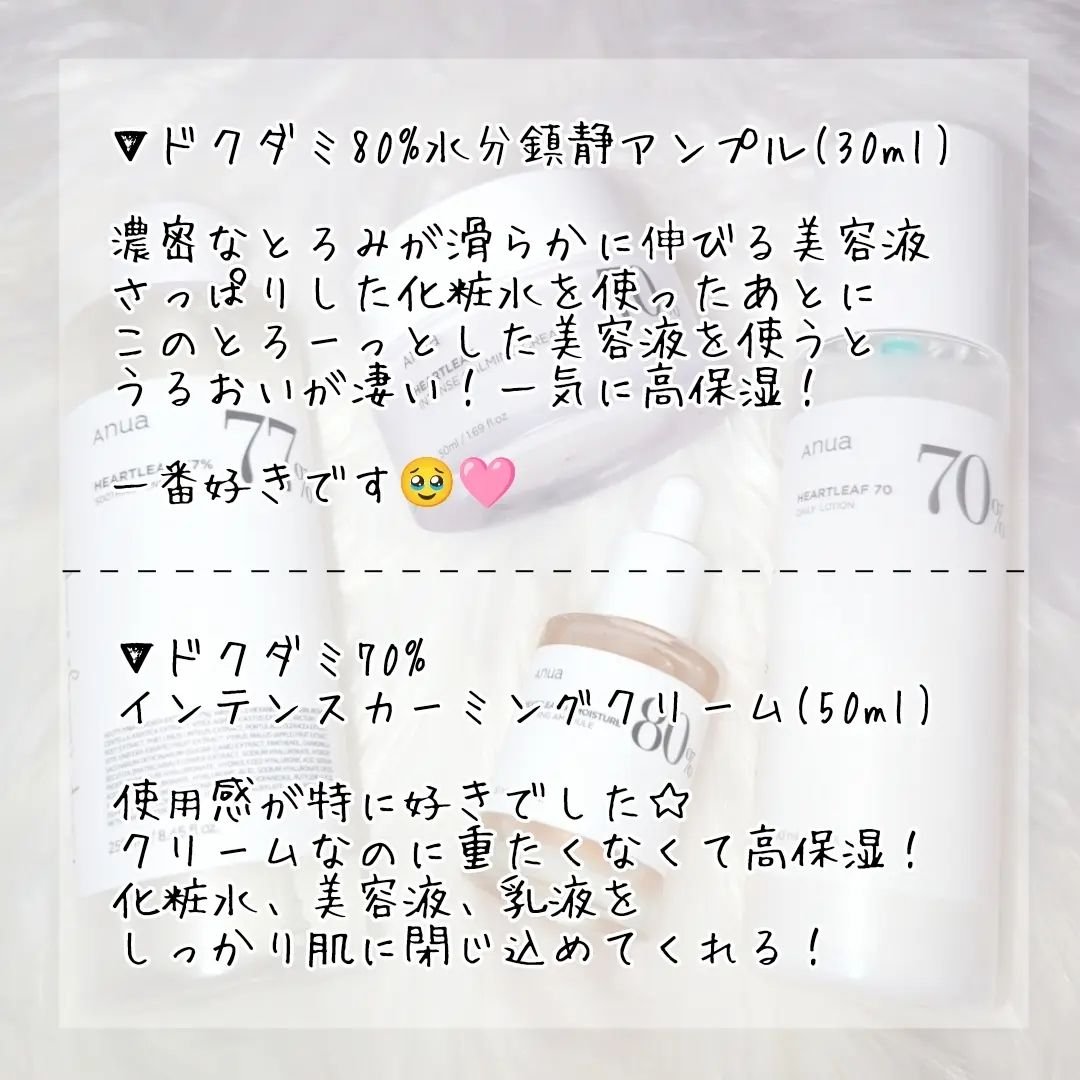 ▼ドクダミ80%水分鎮静アンプル(30ml)
濃密なとろみが滑らかに伸びる美容液
さっぱりした化粧水を使ったあとに
このとろーっとした美容液を使うと
うるおいが凄い！一気に高保湿！
一番好きです🥹🩷
▼ドクダミ70%
インテンスカーミングクリーム(50ml)
使用感が特に好きでした☆
クリームなのに重たくなくて高保湿！
化粧水、美容液、乳液を
しっかり肌に閉じ込めてくれる！
Anua
77%
HEARTLEAF 77%
Anua
70%
HEARTLEAF
50ml / 1.69 fl.oz
Anua
70%
HEARTLEAF 70
DAILY LOTION
Anua
80%